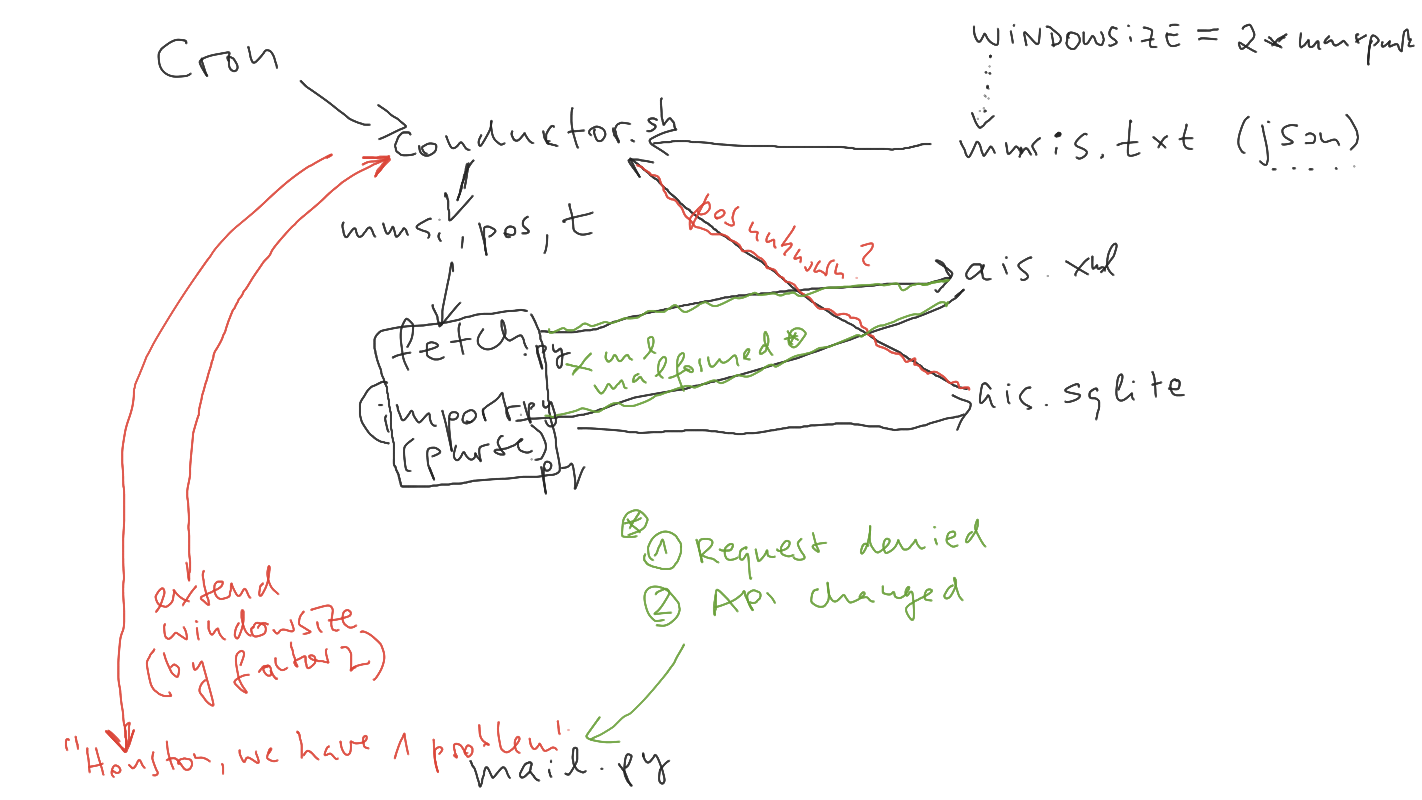 Cron
WINDOWSIZE = 2 *
conductor.sh
mmsis.txt (json)
mmsi, pos, t
pos unknown?
ais.xml
fetch.py
xml
malformed *
import.py
(parse)
py
ais.sqlite
* ① Request denied
② API changed
extend
windowsize
(by factor 2)
"Houston, we have 1 problem"
mail.py